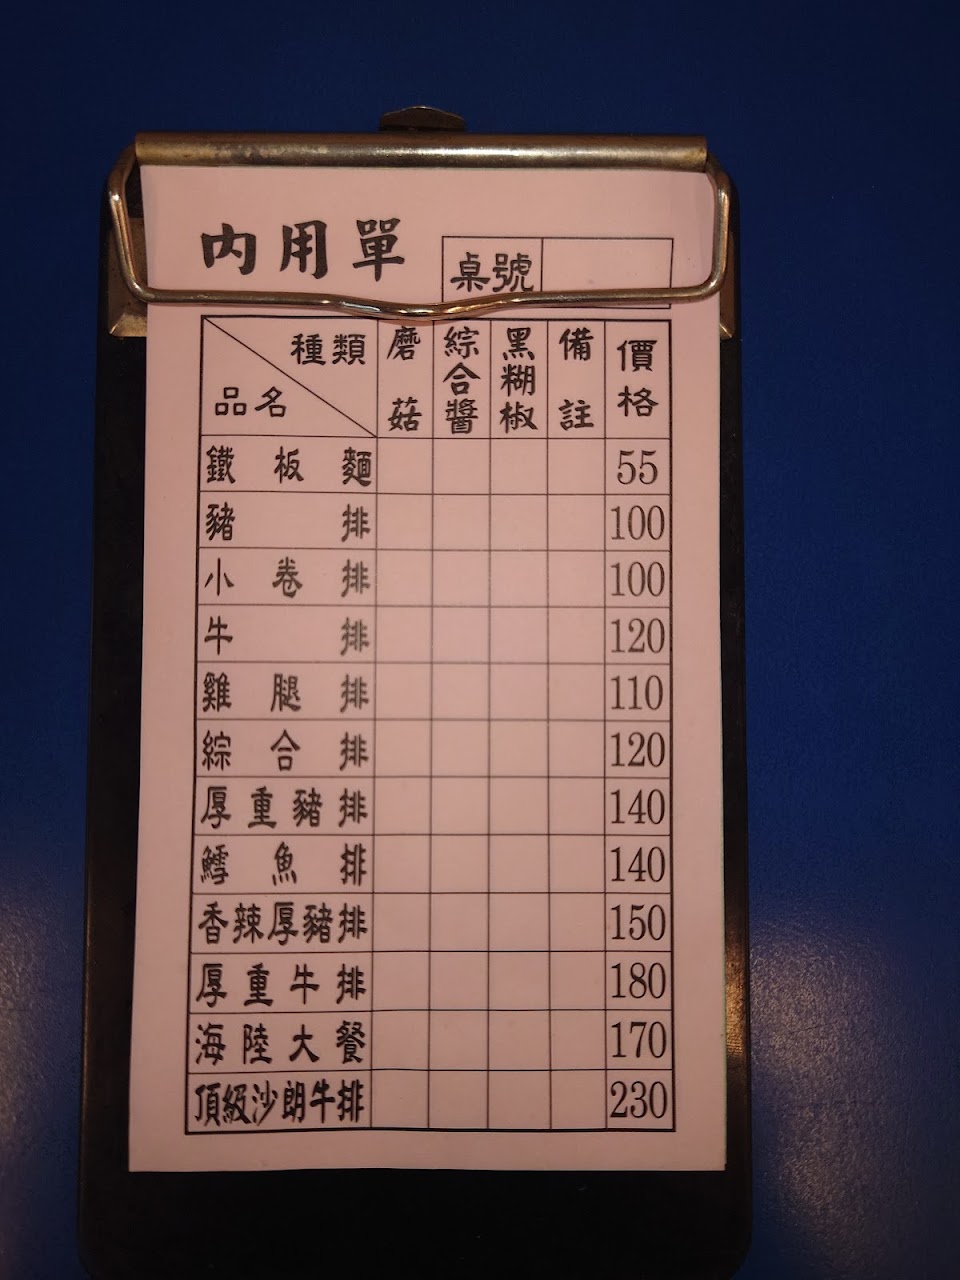 內用單
桌號
種類 品名 磨菇 綜合醬 黑糊椒 備註 價格
鐵板麵 55
豬排 100
小卷排 100
牛排 120
雞腿排 110
綜合排 120
厚重豬排 140
鱈魚排 140
香辣厚豬排 150
厚重牛排 180
海陸大餐 170
頂級沙朗牛排 230